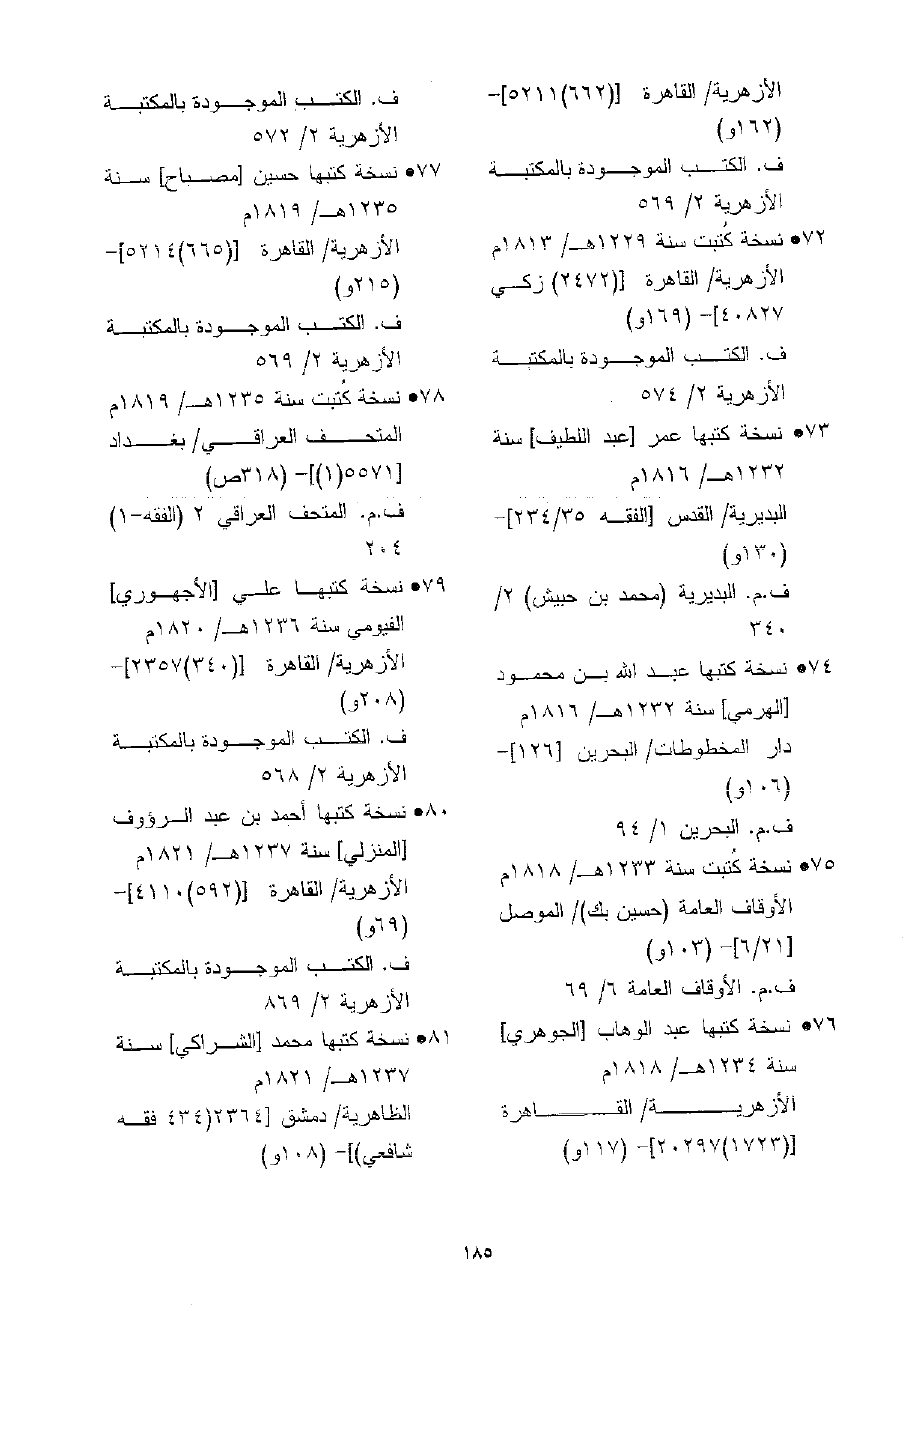 الأزهرية/ القاهرة [(٦٦٢)٥٢١١]-
(١٦٢و)
ف. الكتب الموجودة بالمكتبة
الأزهرية ٢/ ٥٦٩
٧٢• نسخة كُتبت سنة ١٢٢٩هـ/ ١٨١٣م
الأزهرية/ القاهرة [(٢٤٧٢) زكي
٤٠٨٢٧]- (١٦٩و)
ف. الكتب الموجودة بالمكتبة
الأزهرية ٢/ ٥٧٤
٧٣• نسخة كتبها عمر [عبد اللطيف] سنة
١٢٣٢هـ/ ١٨١٦م
البديرية/ القدس [الفقه ٢٣٤/٣٥]-
(١٣٠و)
ف.م. البديرية (محمد بن حبيش) ٢/
٣٤٠
٧٤• نسخة كتبها عبد الله بن محمود
[الهرمي] سنة ١٢٣٢هـ/ ١٨١٦م
دار المخطوطات/ البحرين [١٢٦]-
(١٠٦و)
ف.م. البحرين ١/ ٩٤
٧٥• نسخة كُتبت سنة ١٢٣٣هـ/ ١٨١٨م
الأوقاف العامة (حسين بك)/ الموصل
[٦/٢١]- (١٠٣و)
ف.م. الأوقاف العامة ٦/ ٦٩
٧٦• نسخة كتبها عبد الوهاب [الجوهري]
سنة ١٢٣٤هـ/ ١٨١٨م
الأزهرية/ القاهرة
[(١٧٢٣)٢٠٢٩٧]- (١١٧و)
ف. الكتب الموجودة بالمكتبة
الأزهرية ٢/ ٥٧٢
٧٧• نسخة كتبها حسين [مصباح] سنة
١٢٣٥هـ/ ١٨١٩م
الأزهرية/ القاهرة [(٦٦٥)٥٢١٤]-
(٢١٥و)
ف. الكتب الموجودة بالمكتبة
الأزهرية ٢/ ٥٦٩
٧٨• نسخة كُتبت سنة ١٢٣٥هـ/ ١٨١٩م
المتحف العراقي/ بغداد
[٥٥٧١(١)]- (٣١٨ص)
ف.م. المتحف العراقي ٢ (الفقه-١)
٢٠٤
٧٩• نسخة كتبها علي [الأجهوري]
الفيومي سنة ١٢٣٦هـ/ ١٨٢٠م
الأزهرية/ القاهرة [(٣٤٠)٢٣٥٧]-
(٢٠٨و)
ف. الكتب الموجودة بالمكتبة
الأزهرية ٢/ ٥٦٨
٨٠• نسخة كتبها أحمد بن عبد الرؤوف
[المنزلي] سنة ١٢٣٧هـ/ ١٨٢١م
الأزهرية/ القاهرة [(٥٩٢)٤١١٠]-
(٦٩و)
ف. الكتب الموجودة بالمكتبة
الأزهرية ٢/ ٨٦٩
٨١• نسخة كتبها محمد [الشراكي] سنة
١٢٣٧هـ/ ١٨٢١م
الظاهرية/ دمشق [٢٣٦٤(٤٣٤ فقه
شافعي)]- (١٠٨و)
١٨٥